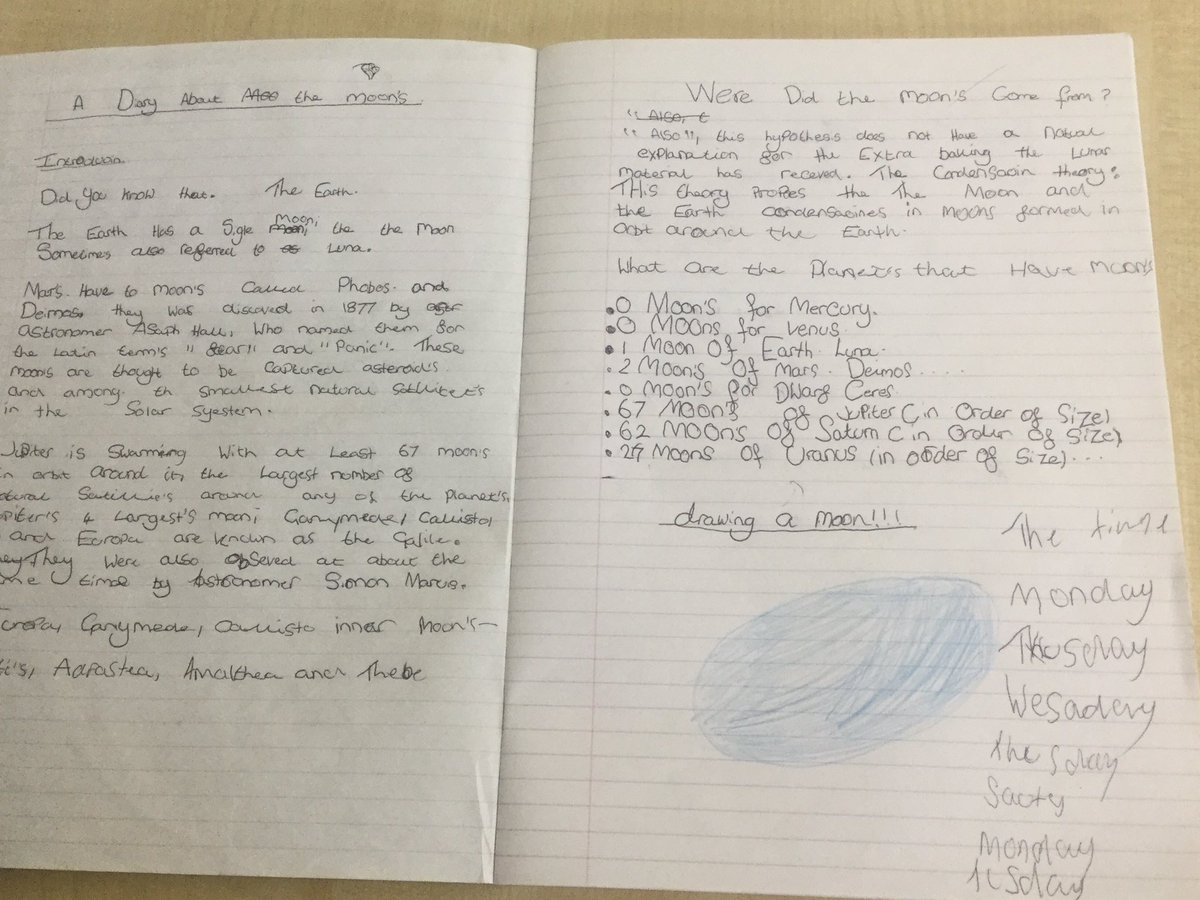 A Diary About Also the moon's
Introduction
Did, you know that. The Earth.
Moon,
The Earth Has a Sigle Moon, the the Moon
Sometimes also referred to as Luna.
Mars. Have to moon's Called Phobos. and
Deimos, they was discoved in 1877 by astr
astronomer Asaph Hall, Who named them for
the Latin term's "fear" and "Panic". These
moons are thought to be Captured asteroids.
and among. th smallest natural satllitet's
in the Solar Syestem.
Jupiter is Swarming With at Least 67 moon's
in orbit around it, the Largest nomber of
atural Satillie's around any of the planet's,
upiter's 4 Largest's moon; Ganymede, Callisto,
and Europa are known as the Galile.
hey They Were also obseved at about the
me timde by Astronomer Simon Marcis.
Europa, Ganymede, Callisto inner Moon's—
Adrastea, Amalthea and Thebe
Were Did the moon's Come from?
"Also, t
"Also", this hypothess does not Have a natual
explanation for the Extra baking the Lunar
material has receved. The Condensaoin theory:
THis theory Propes the The Moon and
the Earth condensaoines in moons formed in
orbt around the Earth.
What are the Planet's that Have moon's
.0 Moon's for Mercury.
.0 Moons for venus.
.1 Moon Of Earth. Luna.
.2 Moon's Of Mars. Deimos....
.0 Moon's for Dwarf Ceres.
.67 Moon's of Jupiter (in Order of Size)
.62 Moons of Saturn (in Order of Size)
.27 Moons of Uranus (in oorder of Size)...
drawing a moon!!!
The time
Monday
Thusday
Wesaday
the sday
Sacty
Monday
tusday